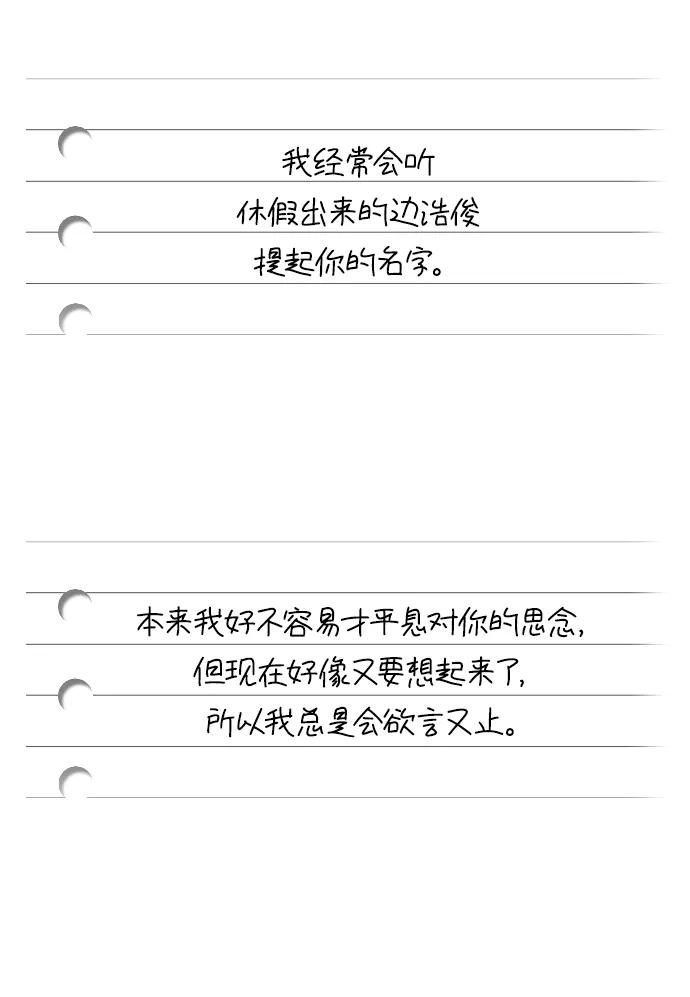 我经常会听
休假出来的边浩俊
提起你的名字。
本来我好不容易才平息对你的思念,
但现在好像又要想起来了,
所以我总是会欲言又止。